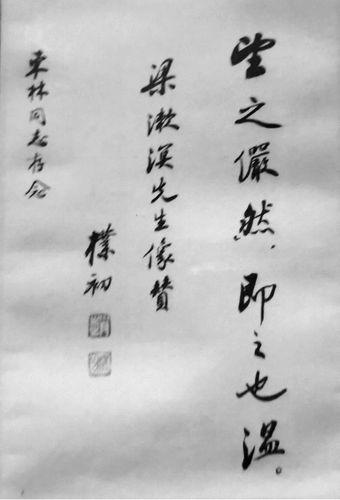 望之儼然，即之也溫。
梁漱溟先生像贊
樸初
東林同志存念